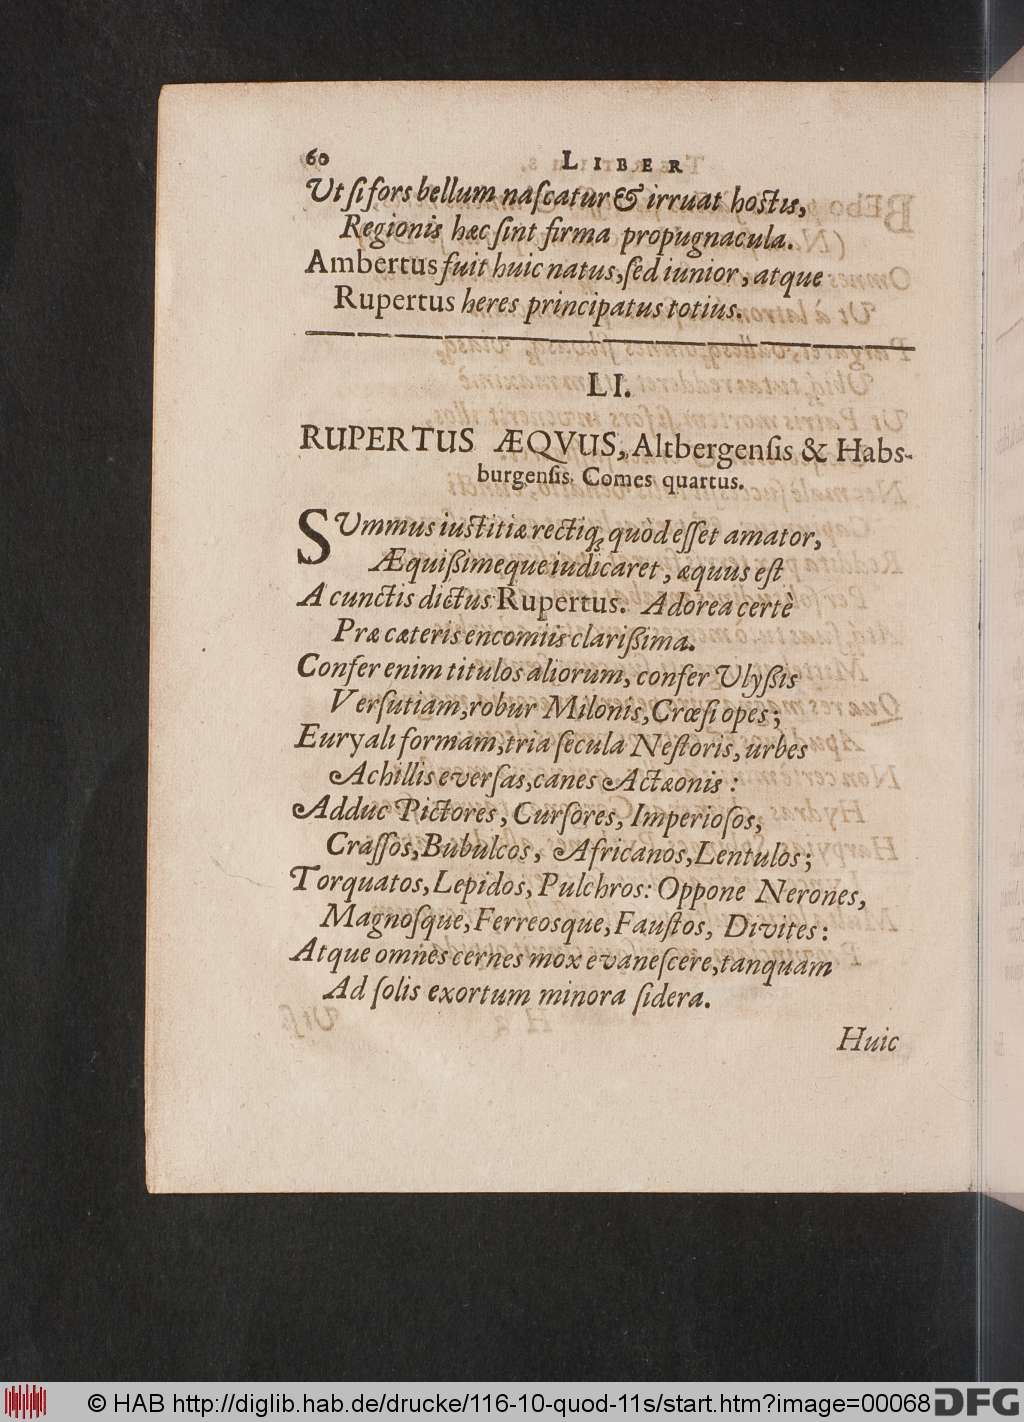 60 LIBER
Ut si fors bellum nascatur & irruat hostis,
Regionis hæc sint firma propugnacula.
Ambertus fuit huic natus, sed iunior, atque
Rupertus heres principatus totius.
LI.
RUPERTUS ÆQVUS, Altbergensis & Habs-
burgensis Comes quartus.
SUmmus iustitiæ rectiq; quòd esset amator,
Æquißimeque iudicaret, æquus est
A cunctis dictus Rupertus. Adorea certè
Præ cæteris encomiis clarißima.
Confer enim titulos aliorum, confer Ulyßis
Versutiam, robur Milonis, Crœsi opes;
Euryali formam, tria secula Nestoris, urbes
Achillis eversas, canes Actæonis:
Adduc Pictores, Cursores, Imperiosos,
Crassos, Bubulcos, Africanos, Lentulos;
Torquatos, Lepidos, Pulchros: Oppone Nerones,
Magnosque, Ferreosque, Faustos, Divites:
Atque omnes cernes mox evanescere, tanquam
Ad solis exortum minora sidera.
Huic
© HAB http://diglib.hab.de/drucke/116-10-quod-11s/start.htm?image=00068 DFG